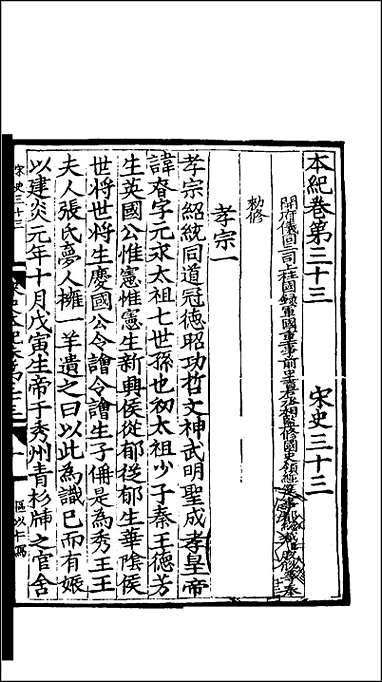 本紀卷第三十三　宋史三十三
開府儀同三司上柱國録軍國重事前中書右丞相監修國史領經筵事都總裁臣脫脫等奉
勅修
孝宗一
孝宗紹統同道冠德昭功哲文神武明聖成孝皇帝
諱眘字元永太祖七世孫也初太祖少子秦王德芳
生英國公惟憲惟憲生新興侯從郁從郁生華陰侯
世將世將生慶國公令譮令譮生子偁是為秀王王
夫人張氏夢人擁一羊遺之曰以此為識已而有娠
以建炎元年十月戊寅生帝于秀州青杉牐之官舍
宋史三十三